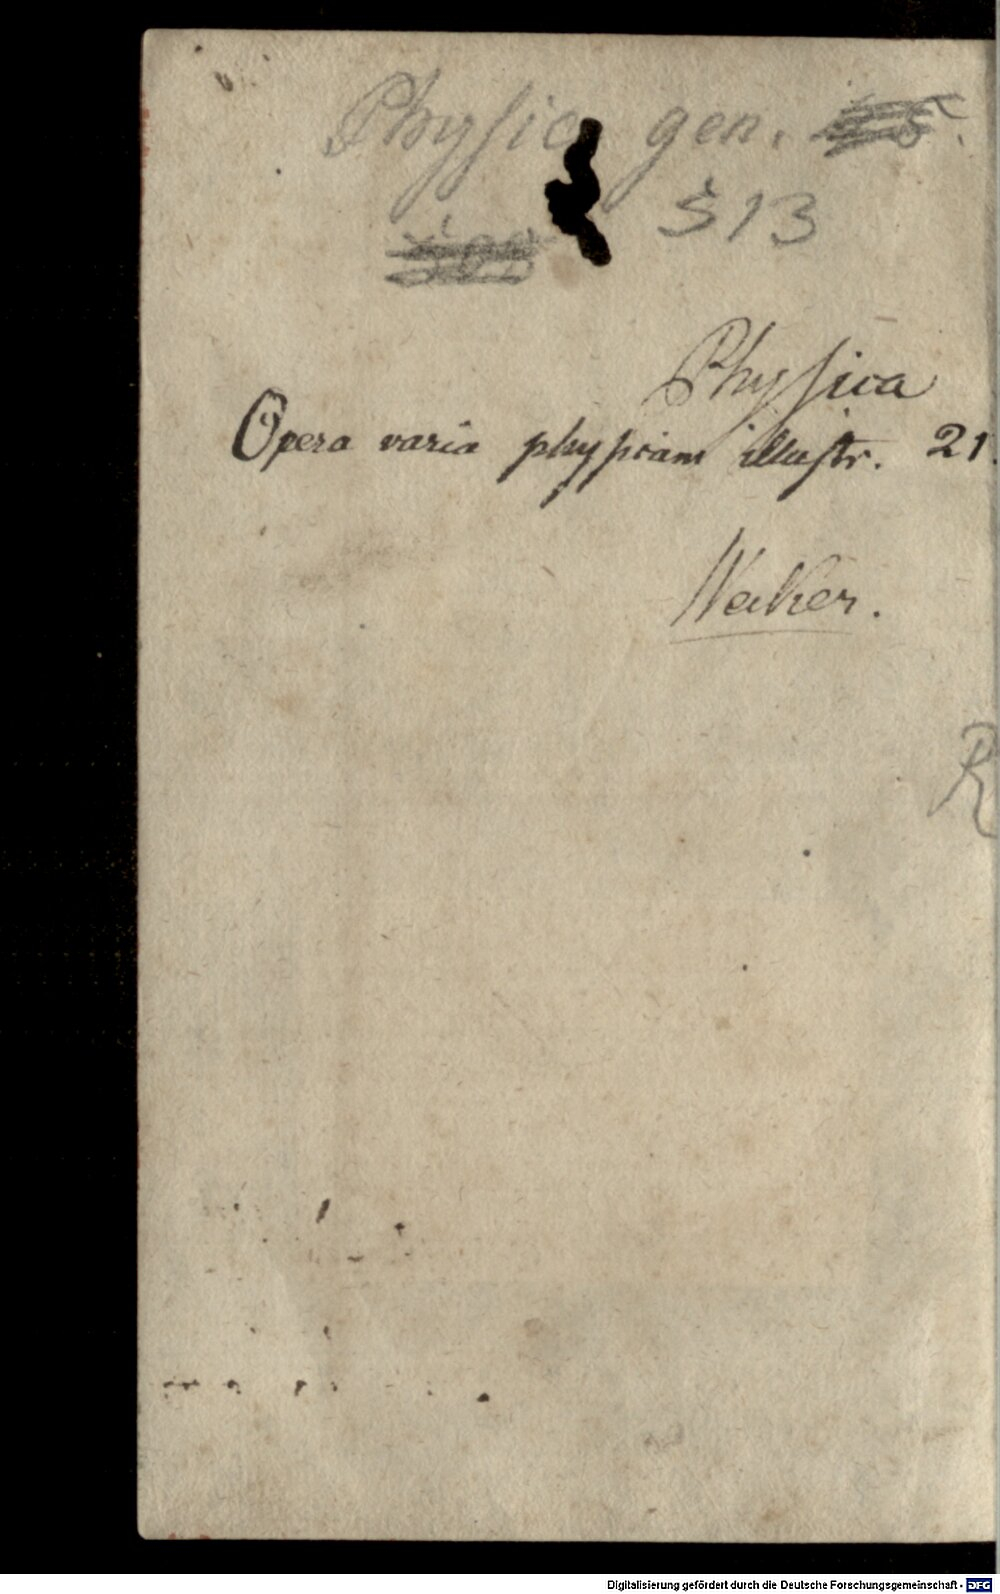 Physica gen.
§ 13
Physica
Opera varia physicam illustr. 21.
R
Digitalisierung gefördert durch die Deutsche Forschungsgemeinschaft - DFG